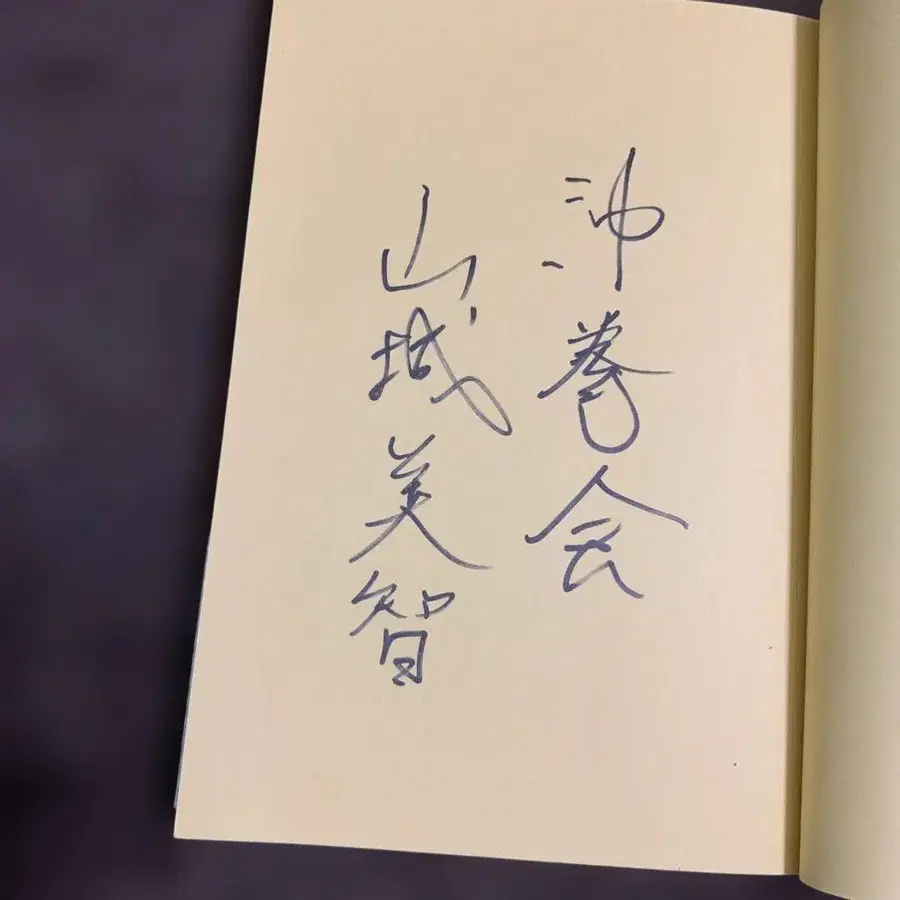 沖拳会
山城美智